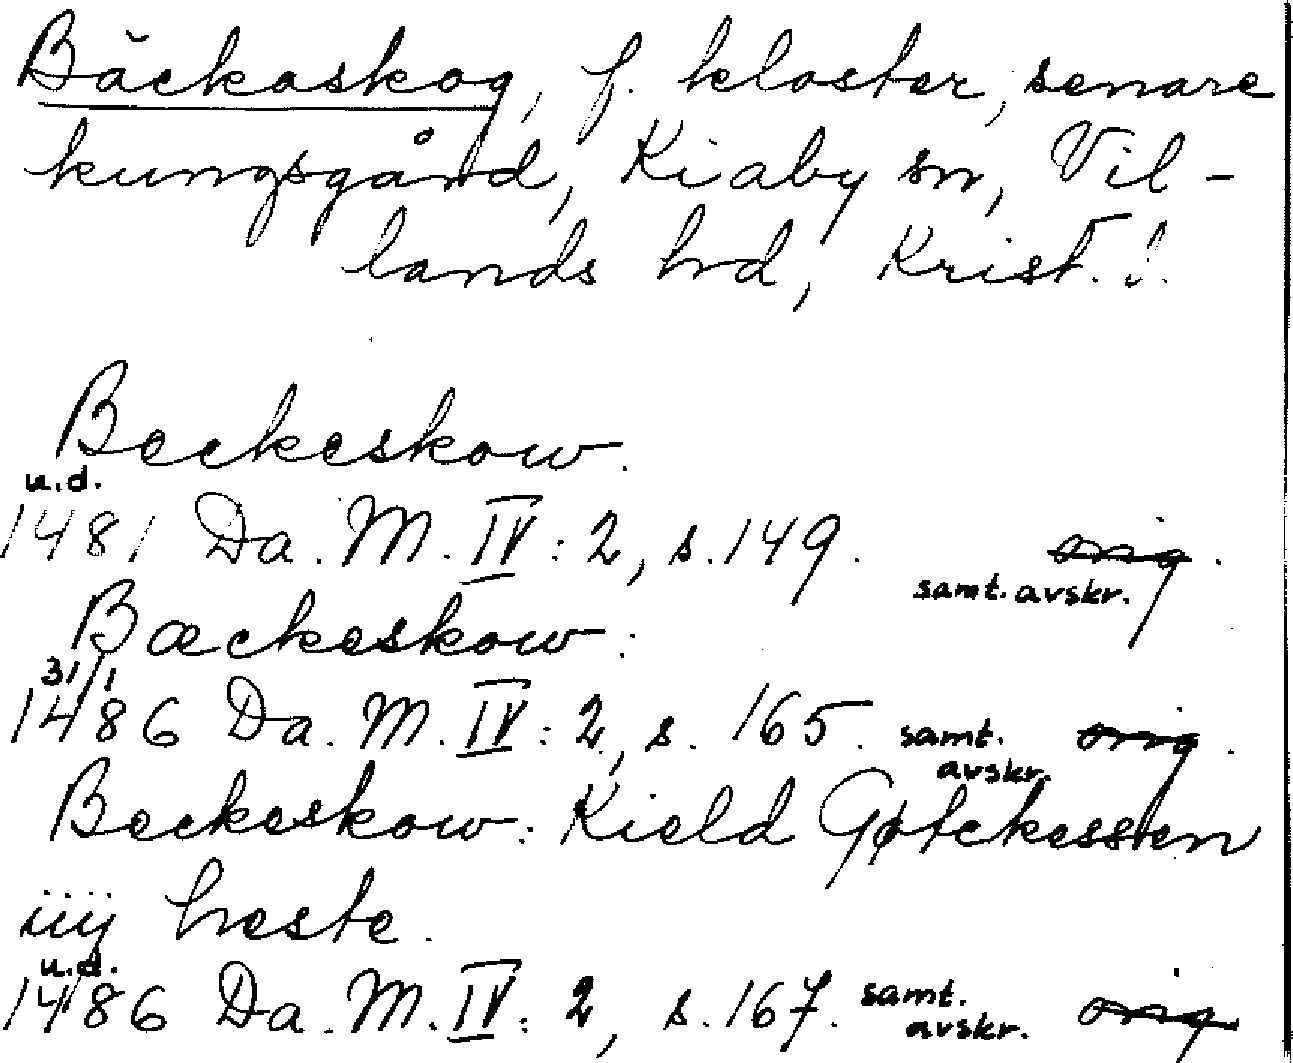 Bäckaskog, f. kloster, senare
kungsgård, Kiaby sn, Vil-
lands hd, Krist. l.
Beckeskow.
u.d.
1481 Da. M. IV: 2, s. 149. orig.
samt. avskr.
Bæckeskow:
31/1
1486 Da. M. IV: 2, s. 165. samt. orig.
avskr.
Beckeskow: Kield Gøtckessen
iiij heste.
u.d.
1486 Da. M. IV: 2, s. 167. samt. orig
avskr.